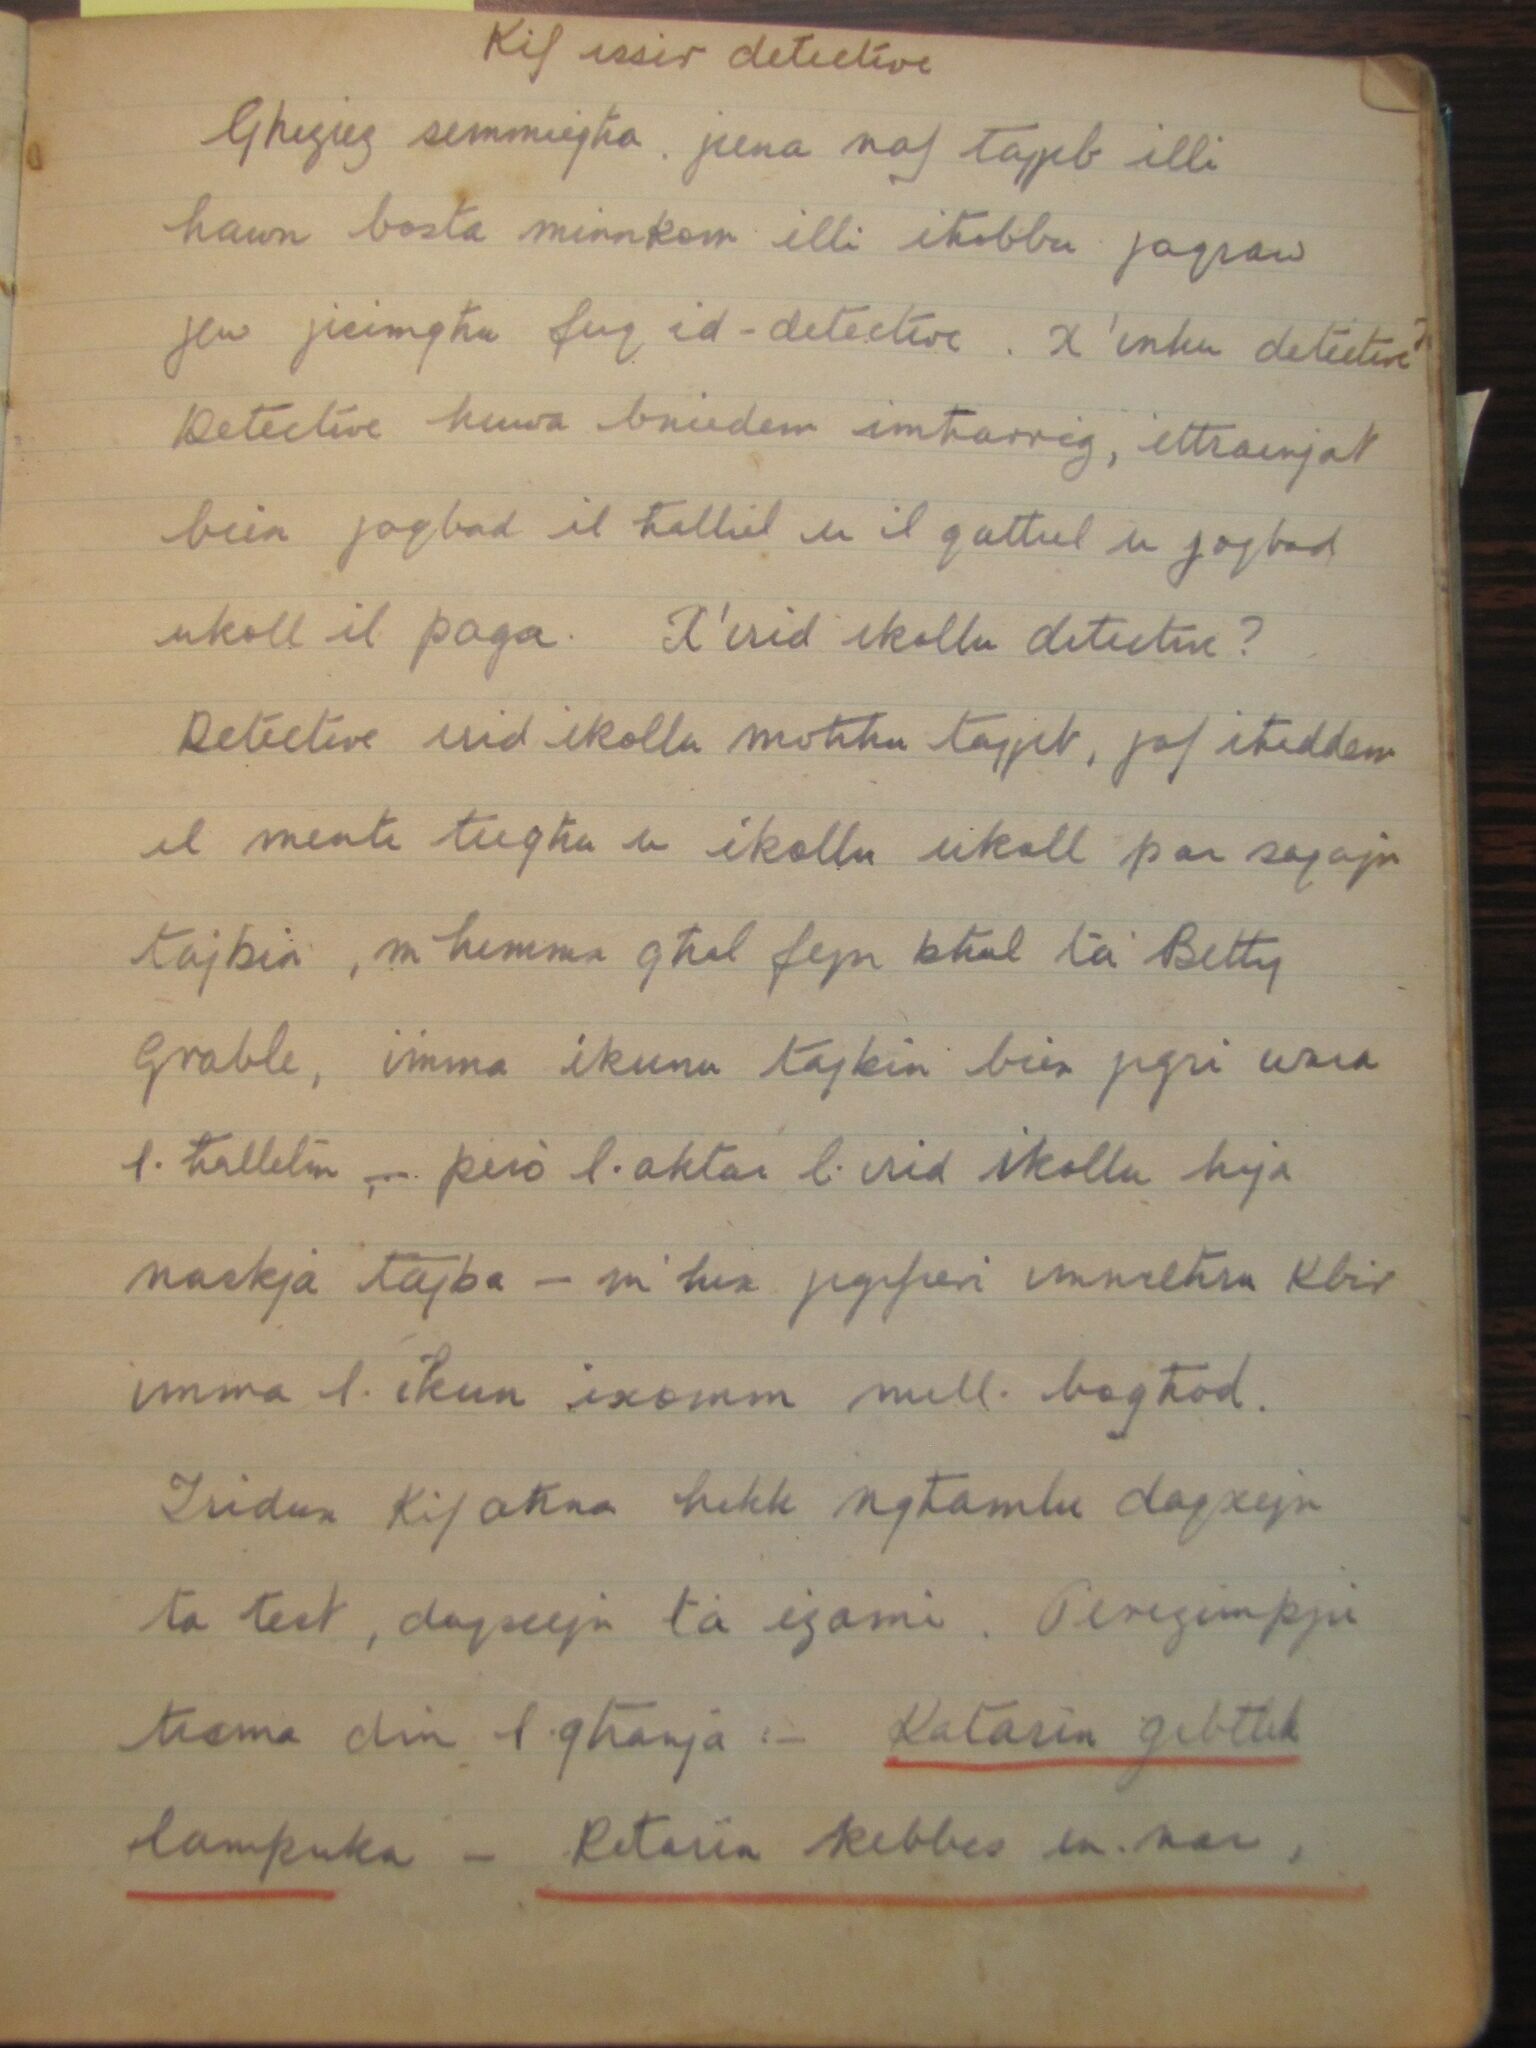 Kif issir detective
Għeżież semmiegħa. jiena naf tajjeb illi
hawn bosta minnkom illi iħobbu jaqraw
jew jisimgħu fuq id-detective. X'inhu detective?
Detective huwa bniedem imħarrig, ittrainjat
biex jaqbad il ħalliel u il qattiel u jaqbad
ukoll il paga. X'irid ikollu detective?
Detective irid ikollu moħħu tajjeb, jaf iħaddem
il menti tiegħu u ikollu ukoll par saqajn
tajbin, m'hemmx għal fejn bħal ta' Betty
Grable, imma ikunu tajbin biex jiġri wara
l. ħallelin, - però l. aktar l. irid ikollu hija
maskja tajba - m'hux jiġifieri imnieħru kbir
imma l. ikun ixomm mill. bogħod.
Iridux kif aħna hekk ngħamlu daqxejn
ta test, daqxejn ta' eżami. Perezimpju
tisma din l. għanja :- Katarin ġibtlek
lampuka - Katarin kebbes in. nar,